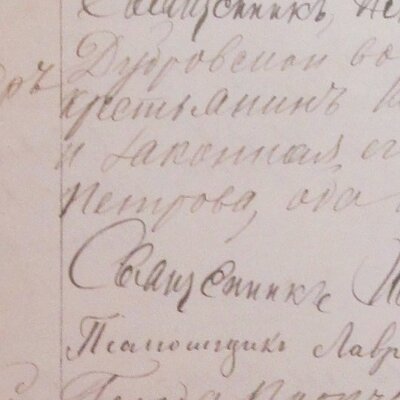 Священникъ
Дубровской во
крестьянинъ
и законная ег
Петрова, оба
Священникъ
Псаломщикъ Лавр